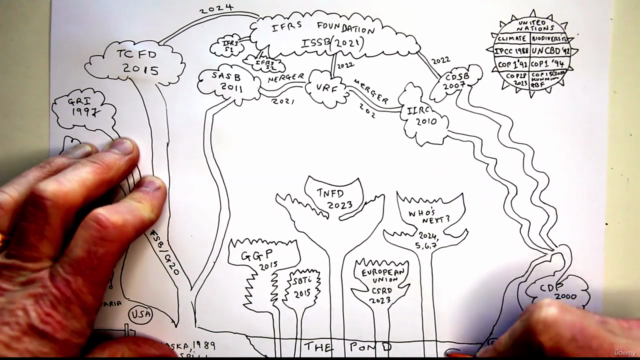 2024
IFRS FOUNDATION
ISSB (2021)
IFRS
S1
IFRS
S2
TCFD
2015
GRI
1997
SASB
2011
MERGER
2021
VRF
2022
MERGER
202
2022
CDSB
2007
IIRC
2010
UNITED
NATIONS
CLIMATE BIODIVERSITY
IPCC 1988 UNCBD '92
COP 1 '93 COP 1 '94
COP28
2023
COP 15
GBF
TNFD
2023
WHO'S
NEXT?
2024,
5,6,7
GGP
2015
SBTi
2015
EUROPEAN
UNION
CSRD
2023
CDP
2000
FSB/G20
USA
1989
THE POND